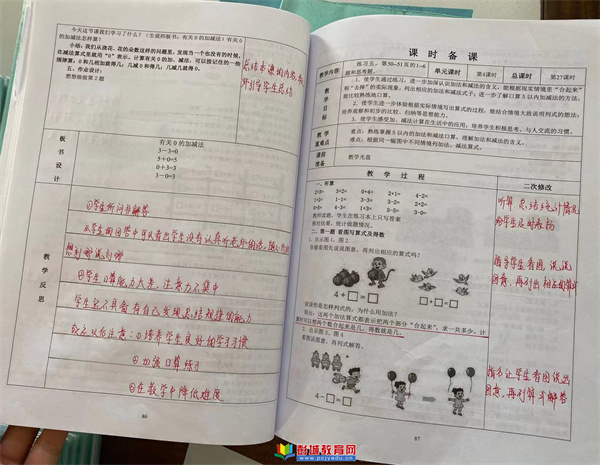 今天这节课我们学习了什么？（生说师板书：有关0的加减法）有关0
的加减法怎样算？
小结：我们从浇花、花的朵数这样的问题里，发现当一个也没有的时候，
在减法算式里就用“0”表示。计算有关0的加、减法，可以按记住的一些
规律算：0和几相加就得几；几减0得几；几减几就得0。
五、作业设计：
想想做做第2题
总结本课的内容,教
师引导学生总结
板
书
设
计
有关0的加减法
3－3=0
5＋0=5
0＋3=3
3－0=3
教
学
反
思
①学生所问非所答
从学生回答中可以看出学生没有认真听老师的话,
想到哪说到哪
②学生口算能力太差,注意力不集中
学生还不具备有自己发现总结规律的能力
③培养学生良好的学习习惯
④加强口算练习
⑤在教学中降低难度
86
课时备课
教学内容
练习五，第50~51页的1~6
题和思考题。
单元课时
第4课时
总课时
第27课时
教学
目标
1．使学生通过练习，进一步加深认识加法和减法的含义，能根据现实情境里“合起来”
和“去掉”的实际现象，列出相应的加法和减法式子；进一步了解口算5以内加减法的方法，
能比较熟练地口算。
2．使学生进一步体验根据实际情境写出算式的过程，能结合情境大致说明列式的想法；
培养观察和初步的比较、归纳等思想能力。
3．使学生感受加、减法计算在生活中的应用，培养学生积极思考、与人交流的习惯。
教学
重难点
重点：熟练掌握5以内的加法和减法口算，理解加法和减法的含义。
难点：根据同一幅图中不同情境列加法、减法算式。
课前
准备
教学光盘
教 学 过 程
二次修改
一、听算
2+3= 3+2= 0+4= 2+1= 4-2=
一个小朋友在练习本上只写答案
二、第一题 看图写算式及得数
1．出示图1，图2
你能看图先说说图意，再列出相应的算式吗？
4＋□＝□
说说你是怎样列式的，为什么用加法？
指出：这两个加法算式都表示把两个部分“合起来”，求一共多少，计
算时可以想两个数合起来是几，得数就是几。
2．出示图3，图4
看图说图意，再列式解答。
4－□＝□
听算,总结统计情况
给学生及时表扬
指多学生看图,说说
图意,再列出相应的算式
指名让学生看图说说
图意,再列算式解答
87
彭城教育网
www.pcjyedu.cn